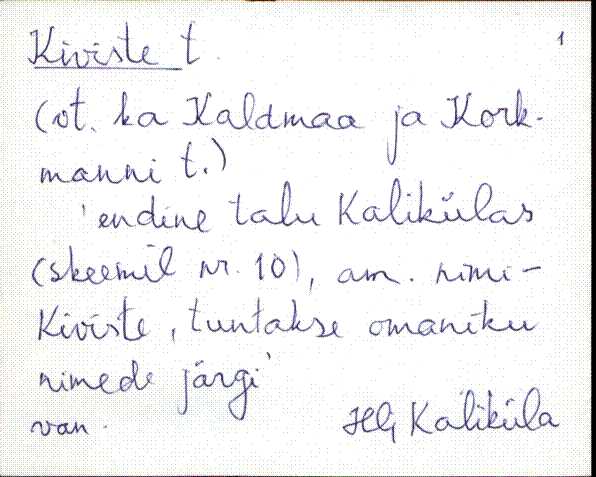 Kiviste t. 1
(vt. ka Kaldmaa ja Kork-
manni t.)
'endine talu Kalikülas
(skeemil nr. 10), am. nimi -
Kiviste, tuntakse omaniku
nimede järgi'
van. Hlj Kaliküla